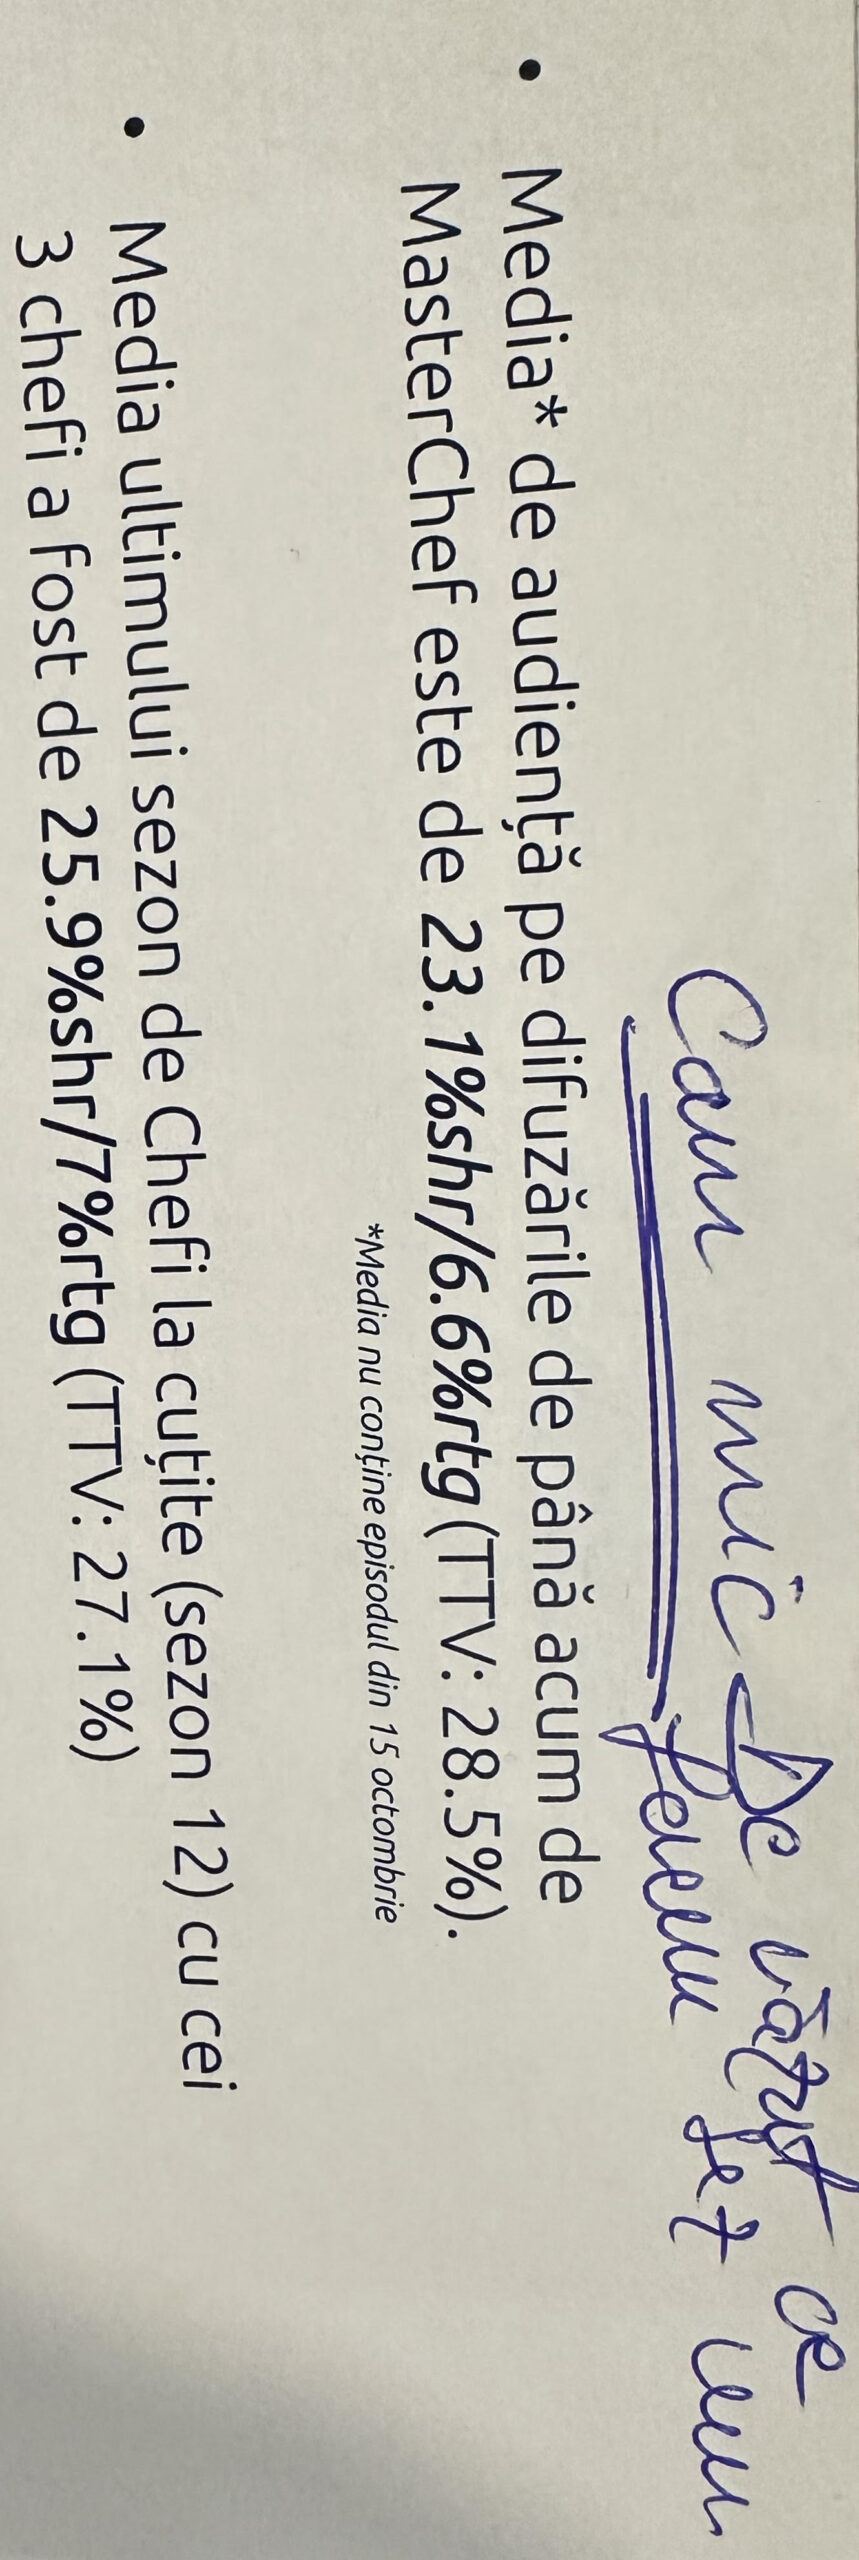 Cam mic De văzut ce
facem set
• Media* de audiență pe difuzările de până acum de
MasterChef este de 23.1%shr/6.6%rtg (TTV: 28.5%).
*Media nu conține episodul din 15 octombrie
• Media ultimului sezon de Chefi la cuțite (sezon 12) cu cei
3 chefi a fost de 25.9%shr/7%rtg (TTV: 27.1%)